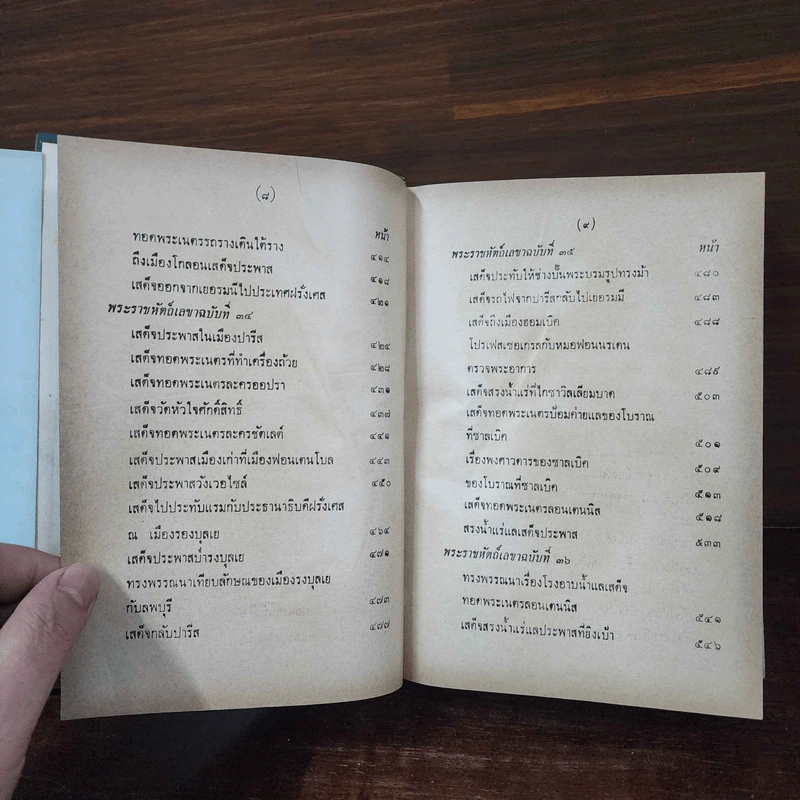 (๘)
หน้า
ทอดพระเนตรรถรางเดินใต้ราง ๔๑๔
ถึงเมืองโกลอนเสด็จประพาส ๔๑๘
เสด็จออกจากเยอรมนีไปประเทศฝรั่งเศส ๔๒๑
พระราชหัตถ์เลขาฉบับที่ ๓๔
เสด็จประพาสในเมืองปารีส ๔๒๔
เสด็จทอดพระเนตรที่ทำเครื่องถ้วย ๔๒๘
เสด็จทอดพระเนตรละครออปรา ๔๓๑
เสด็จวัดหัวใจศักดิ์สิทธิ์ ๔๓๗
เสด็จทอดพระเนตรละครชัตเลต์ ๔๔๑
เสด็จประพาสเมืองเก่าที่เมืองฟอนเตนโบล ๔๔๓
เสด็จประพาสวังเวอไซล์ ๔๕๐
เสด็จไปประทับแรมกับประธานาธิบดีฝรั่งเศส
ณ เมืองรองบุลเย ๔๖๔
เสด็จประพาสป่ารงบุลเย ๔๗๑
ทรงพรรณนาเทียบลักษณของเมืองรงบุลเย
กับลพบุรี ๔๗๓
เสด็จกลับปารีส ๔๗๗
(๙)
พระราชหัตถ์เลขาฉบับที่ ๓๕ หน้า
เสด็จประทับให้ช่างปั้นพระบรมรูปทรงม้า ๔๘๐
เสด็จรถไฟจากปารีสกลับไปเยอรมนี ๔๘๓
เสด็จถึงเมืองฮอมเบิค ๔๘๘
โปรเฟสเซอเกรลกับหมอฟอนนรเดน
ตรวจพระอาการ ๔๘๙
เสด็จสรงน้ำแร่ที่ไกซาวิลเลียมบาด ๕๐๓
เสด็จทอดพระเนตรป้อมค่ายแลของโบราณ
ที่ซาลเบิค ๕๐๑
เรื่องพงศาวดารของซาลเบิค ๕๐๙
ของโบราณที่ซาลเบิค ๕๑๓
เสด็จทอดพระเนตรลอนเตนนิส ๕๑๘
สรงน้ำแร่แลเสด็จประพาส ๕๓๓
พระราชหัตถ์เลขาฉบับที่ ๓๖
ทรงพรรณนาเรื่องโรงอาบน้ำแลเสด็จ
ทอดพระเนตรลอนเตนนิส ๕๔๑
เสด็จสรงน้ำแร่แลประพาสที่ยิงเป้า ๕๔๖